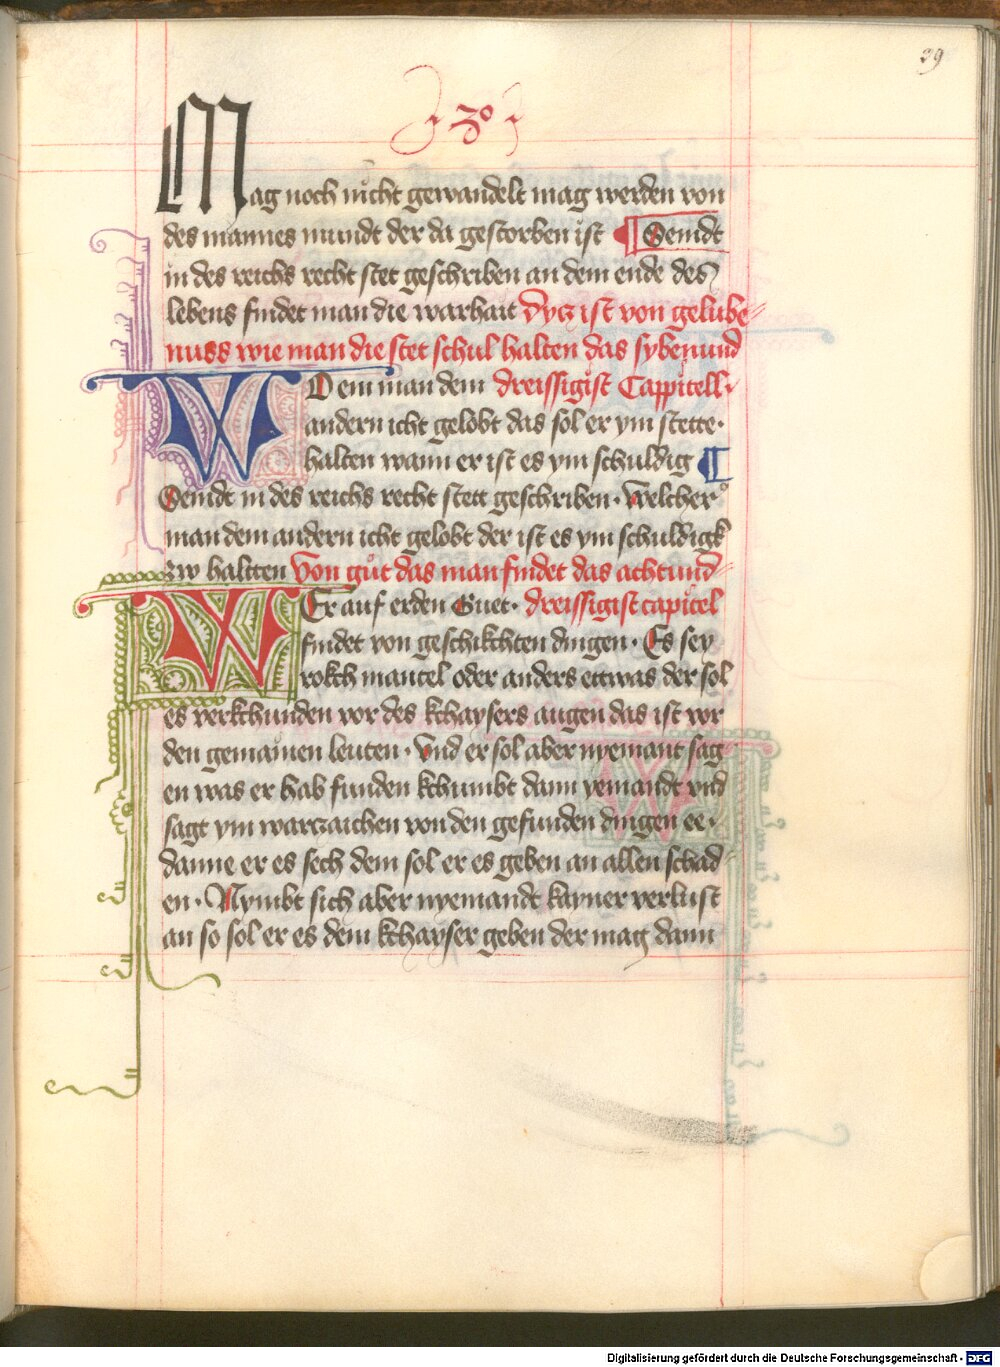 39
30
Mag noch nicht gewandelt mag werden von
des mannes mundt der da gestorben ist Seindt
in des reichs recht stet geschriben an dem ende des
lebens findet man die warhait Dycz ist von gelube
nuss wie man die stet schul halten das syben und
Wem man dem dreissigist Cappitell
andern icht gelobt das sol er ym stette
halten wann er ist es ym schuldig
Seindt in des reichs recht stett geschriben. Welcher
man dem andern icht gelobt der ist es ym schuldigk
zw haltten Von gůt das man findet das acht und
WEr auf erden Guet. dreissigist capitel
findet von geschikchten dingen. Es sey
rokch mantel oder anders ettwas der sol
es verkchunden vor des kchaysers augen das ist vor
den gemainen leuten. Vnd er sol aber nyemant sag
en was er hab funden kchumbt dann yemandt vnd
sagt ym warczaichen von den gefunden dingen ee.
danne er es sech dem sol er es geben an allen schad
en. Nymbt sich aber nyemandt kayner verlust
an so sol er es dem kchayser geben der mag dann
Digitalisierung gefördert durch die Deutsche Forschungsgemeinschaft - DFG